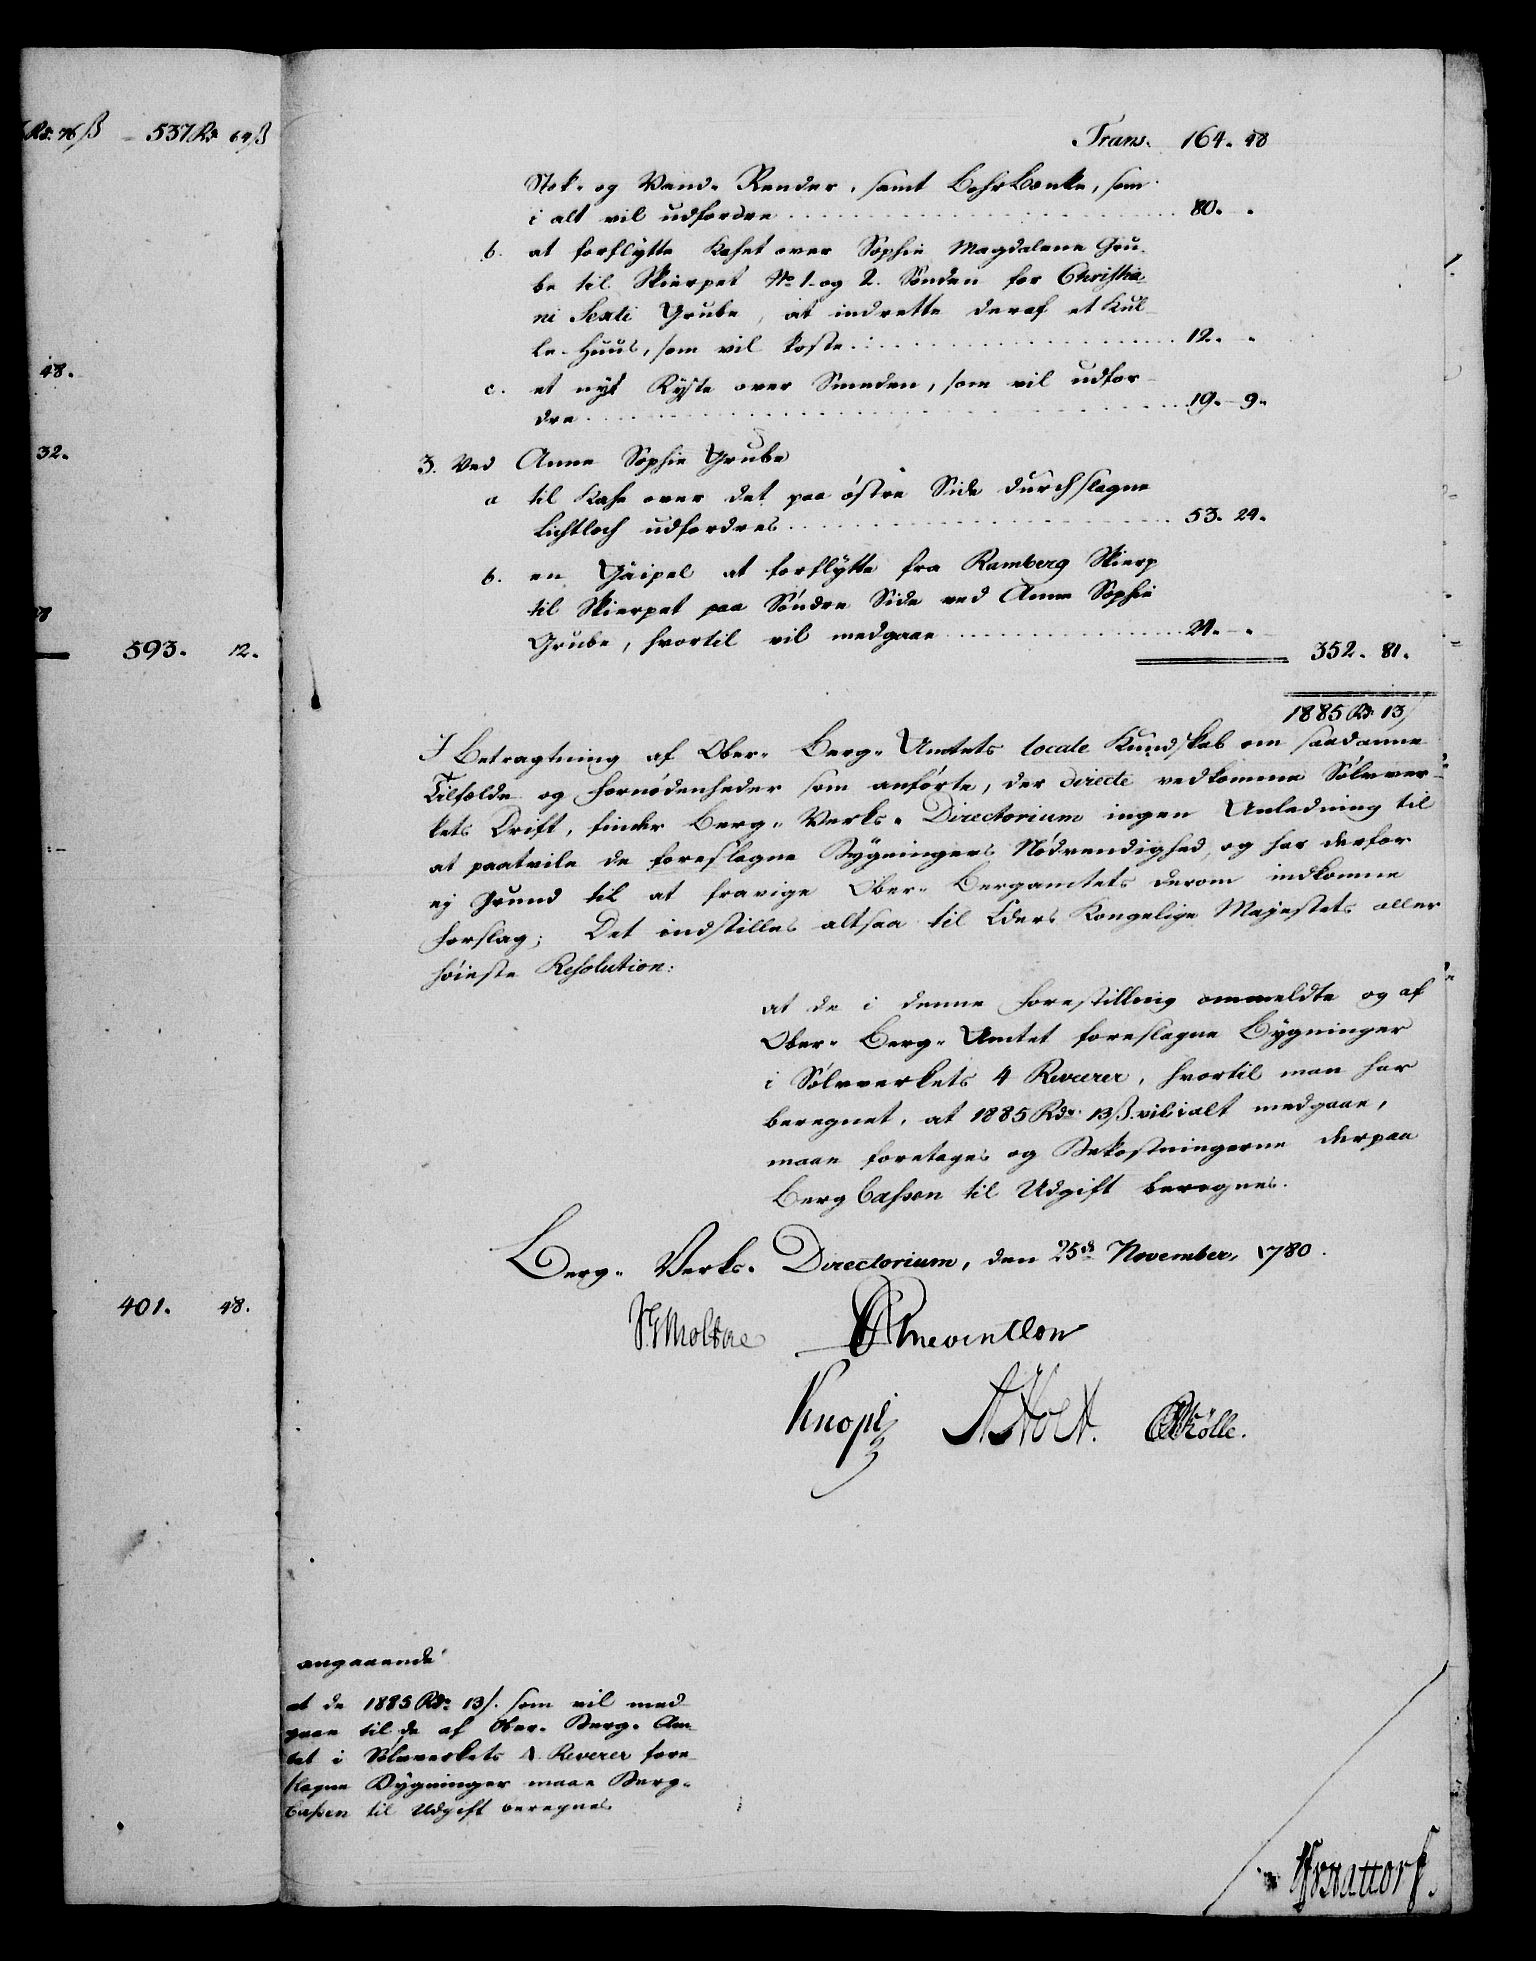 Rd. 76 ß 537 Rd 64 ß
48.
32.
593. 12.
401. 48.
Trans. 164. 48
Stok- og Vand- Render, samt Bohr Banke, som
i alt vil udfordre . . . 80. .
b. at forflytte Kahet over Sophie Magdalene Gru-
be til Skierpet No 1. og 2. Sönden for Christia-
ni Sexti Grube, at indrette deraf et Kul-
le-Huus, som vil koste . . . 12. .
c. et nyt Ryste over Smeden, som vil udfor-
dre . . . 19. 9.
3. Ved Anne Sophie Grube
a til Kahe over det paa østre Side durchslagne
Lichtloch udfordres . . . 53. 24.
b. en Gaipel at forflytte fra Ramberg Skierp
til Skierpet paa Søndre Side ved Anne Sophie
Grube, hvortil vil medgaae . . . 24. .
352. 81.
1885 Rd 13 ß
I Betragtning af Ober- Berg- Amtets locale Kundskab om saadanne
Tilfælde og Fornødenheder som anførte, der directe vedkomme Sølvver-
kets Drift, finder Berg- Verks- Directorium ingen Anledning til
at paatvile de foreslagne Bygningers Nødvendighed, og har derfor
ej Grund til at fravige Ober- Bergamtets derom indkomne
Forslag; Det indstilles altsaa til Eders Kongelige Majestets aller
høieste Resolution:
at de i denne Forestilling ommeldte og af
Ober- Berg- Amtet foreslagne Bygninger
i Sølvverkets 4 Reverer, hvortil man har
beregnet, at 1885 Rdr 13 ß. vil i alt medgaae,
maae foretages og Bekostningerne derpaa
Berg Cassen til Udgift beregnes.
Berg- Verks- Directorium, den 25de November, 1780.
Moltke Reventlow
Knoph AHolt. Rölle.
angaaende
at de 1885 Rdr 13 ß. som vil med
gaae til de af Ober- Berg- Am-
tet i Sølvverkets 4 Reverer fore-
slagne Bygninger maae Berg-
Cassen til Udgift beregnes